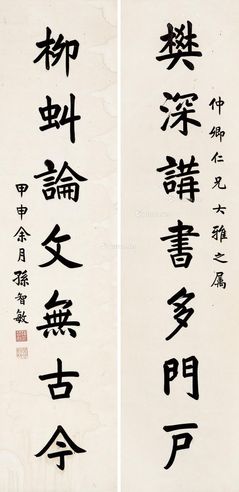 樊深講書多門戶
仲卿仁兄大雅之属
柳虯論文無古今
甲申余月孫智敏